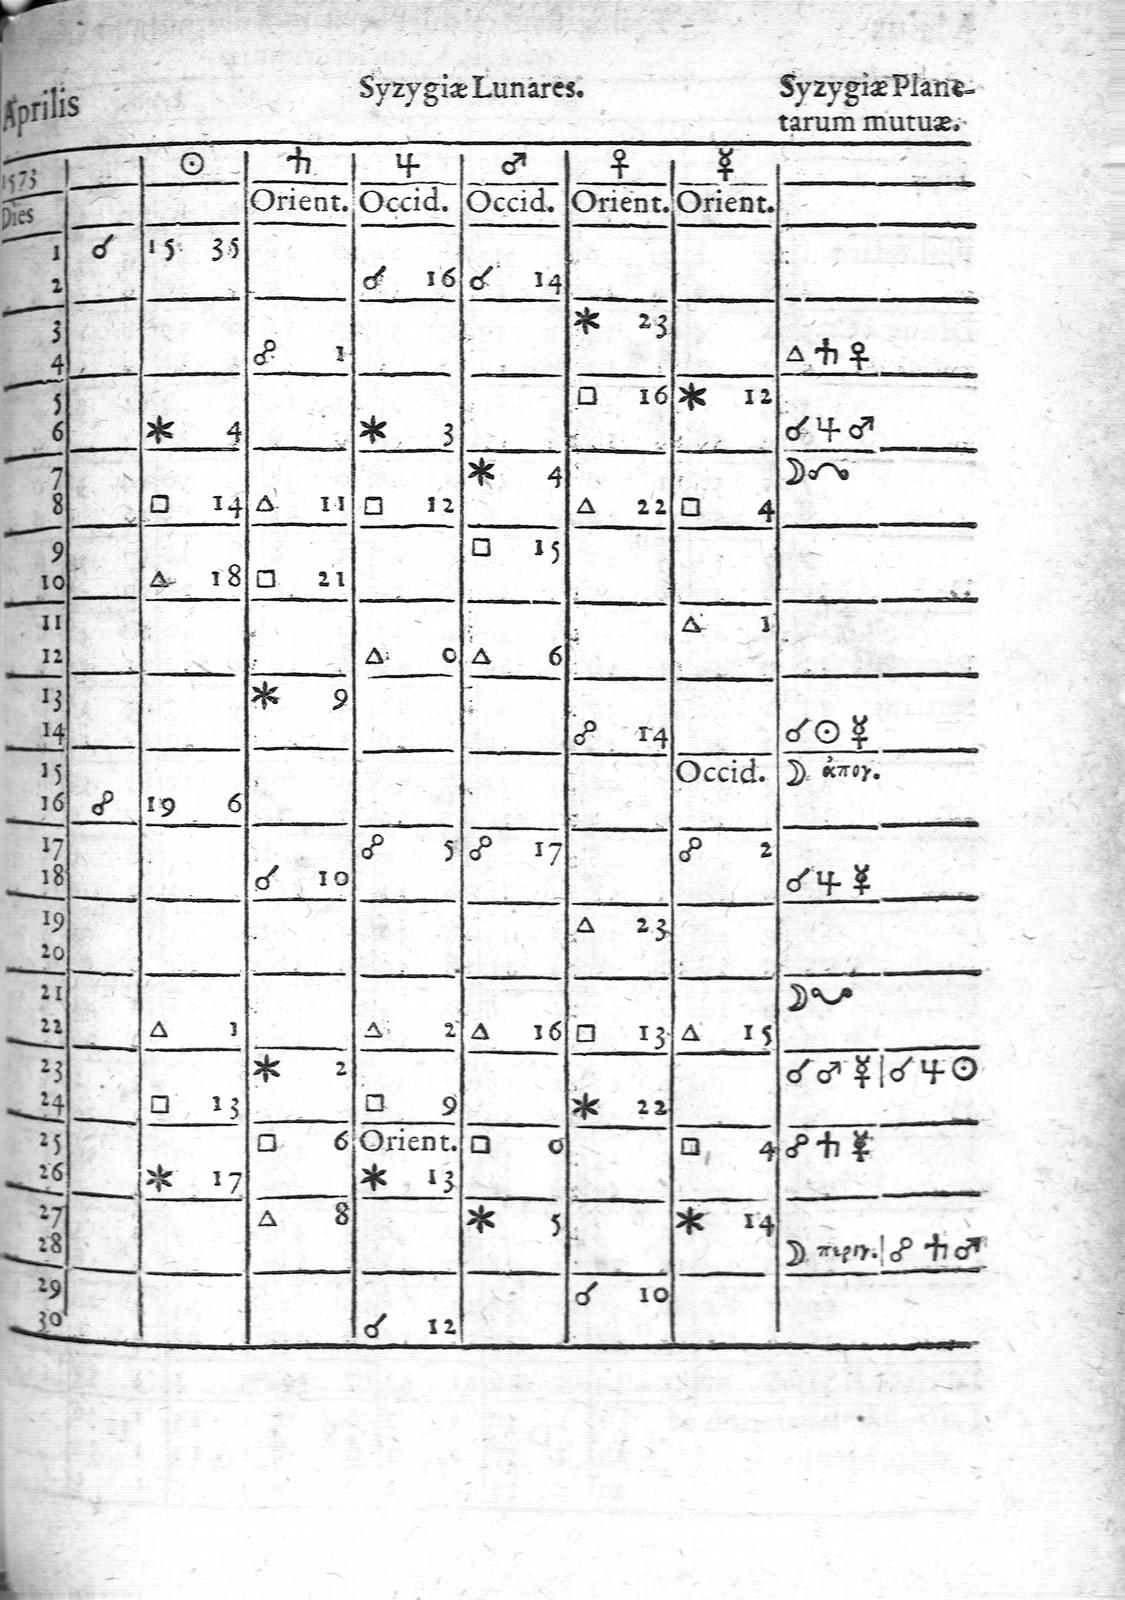 Aprilis
Syzygiæ Lunares.
Syzygiæ Plane-
tarum mutuæ.
1573 ☉ ♄ ♃ ♂ ♀ ☿
Dies Orient. Occid. Occid. Orient. Orient.
1 ☌ 15 35
2 ☌ 16 ☌ 14
3 ⚹ 23
4 ☍ 1 △ ♄ ♀
5 □ 16 ⚹ 12
6 ⚹ 4 ⚹ 3 ☌ ♃ ♂
7 ⚹ 4 ☽ ☊
8 □ 14 △ 11 □ 12 △ 22 □ 4
9 □ 15
10 △ 18 □ 21
11 △ 1
12 △ 0 △ 6
13 ⚹ 9
14 ☍ 14 ☌ ☉ ☿
15 Occid. ☽ ἀπογ.
16 ☍ 19 6
17 ☍ 5 ☍ 17 ☍ 2
18 ☌ 10 ☌ ♃ ☿
19 △ 23
20
21 ☽ ☋
22 △ 1 △ 2 △ 16 □ 13 △ 15
23 ⚹ 2 ☌ ♂ ☿ | ☌ ♃ ☉
24 □ 13 □ 9 ⚹ 22
25 □ 6 Orient. □ 0 □ 4 ☍ ♄ ☿
26 ⚹ 17 ⚹ 13
27 △ 8 ⚹ 5 ⚹ 14
28 ☽ περιγ. | ☍ ♄ ♂
29 ☌ 10
30 ☌ 12